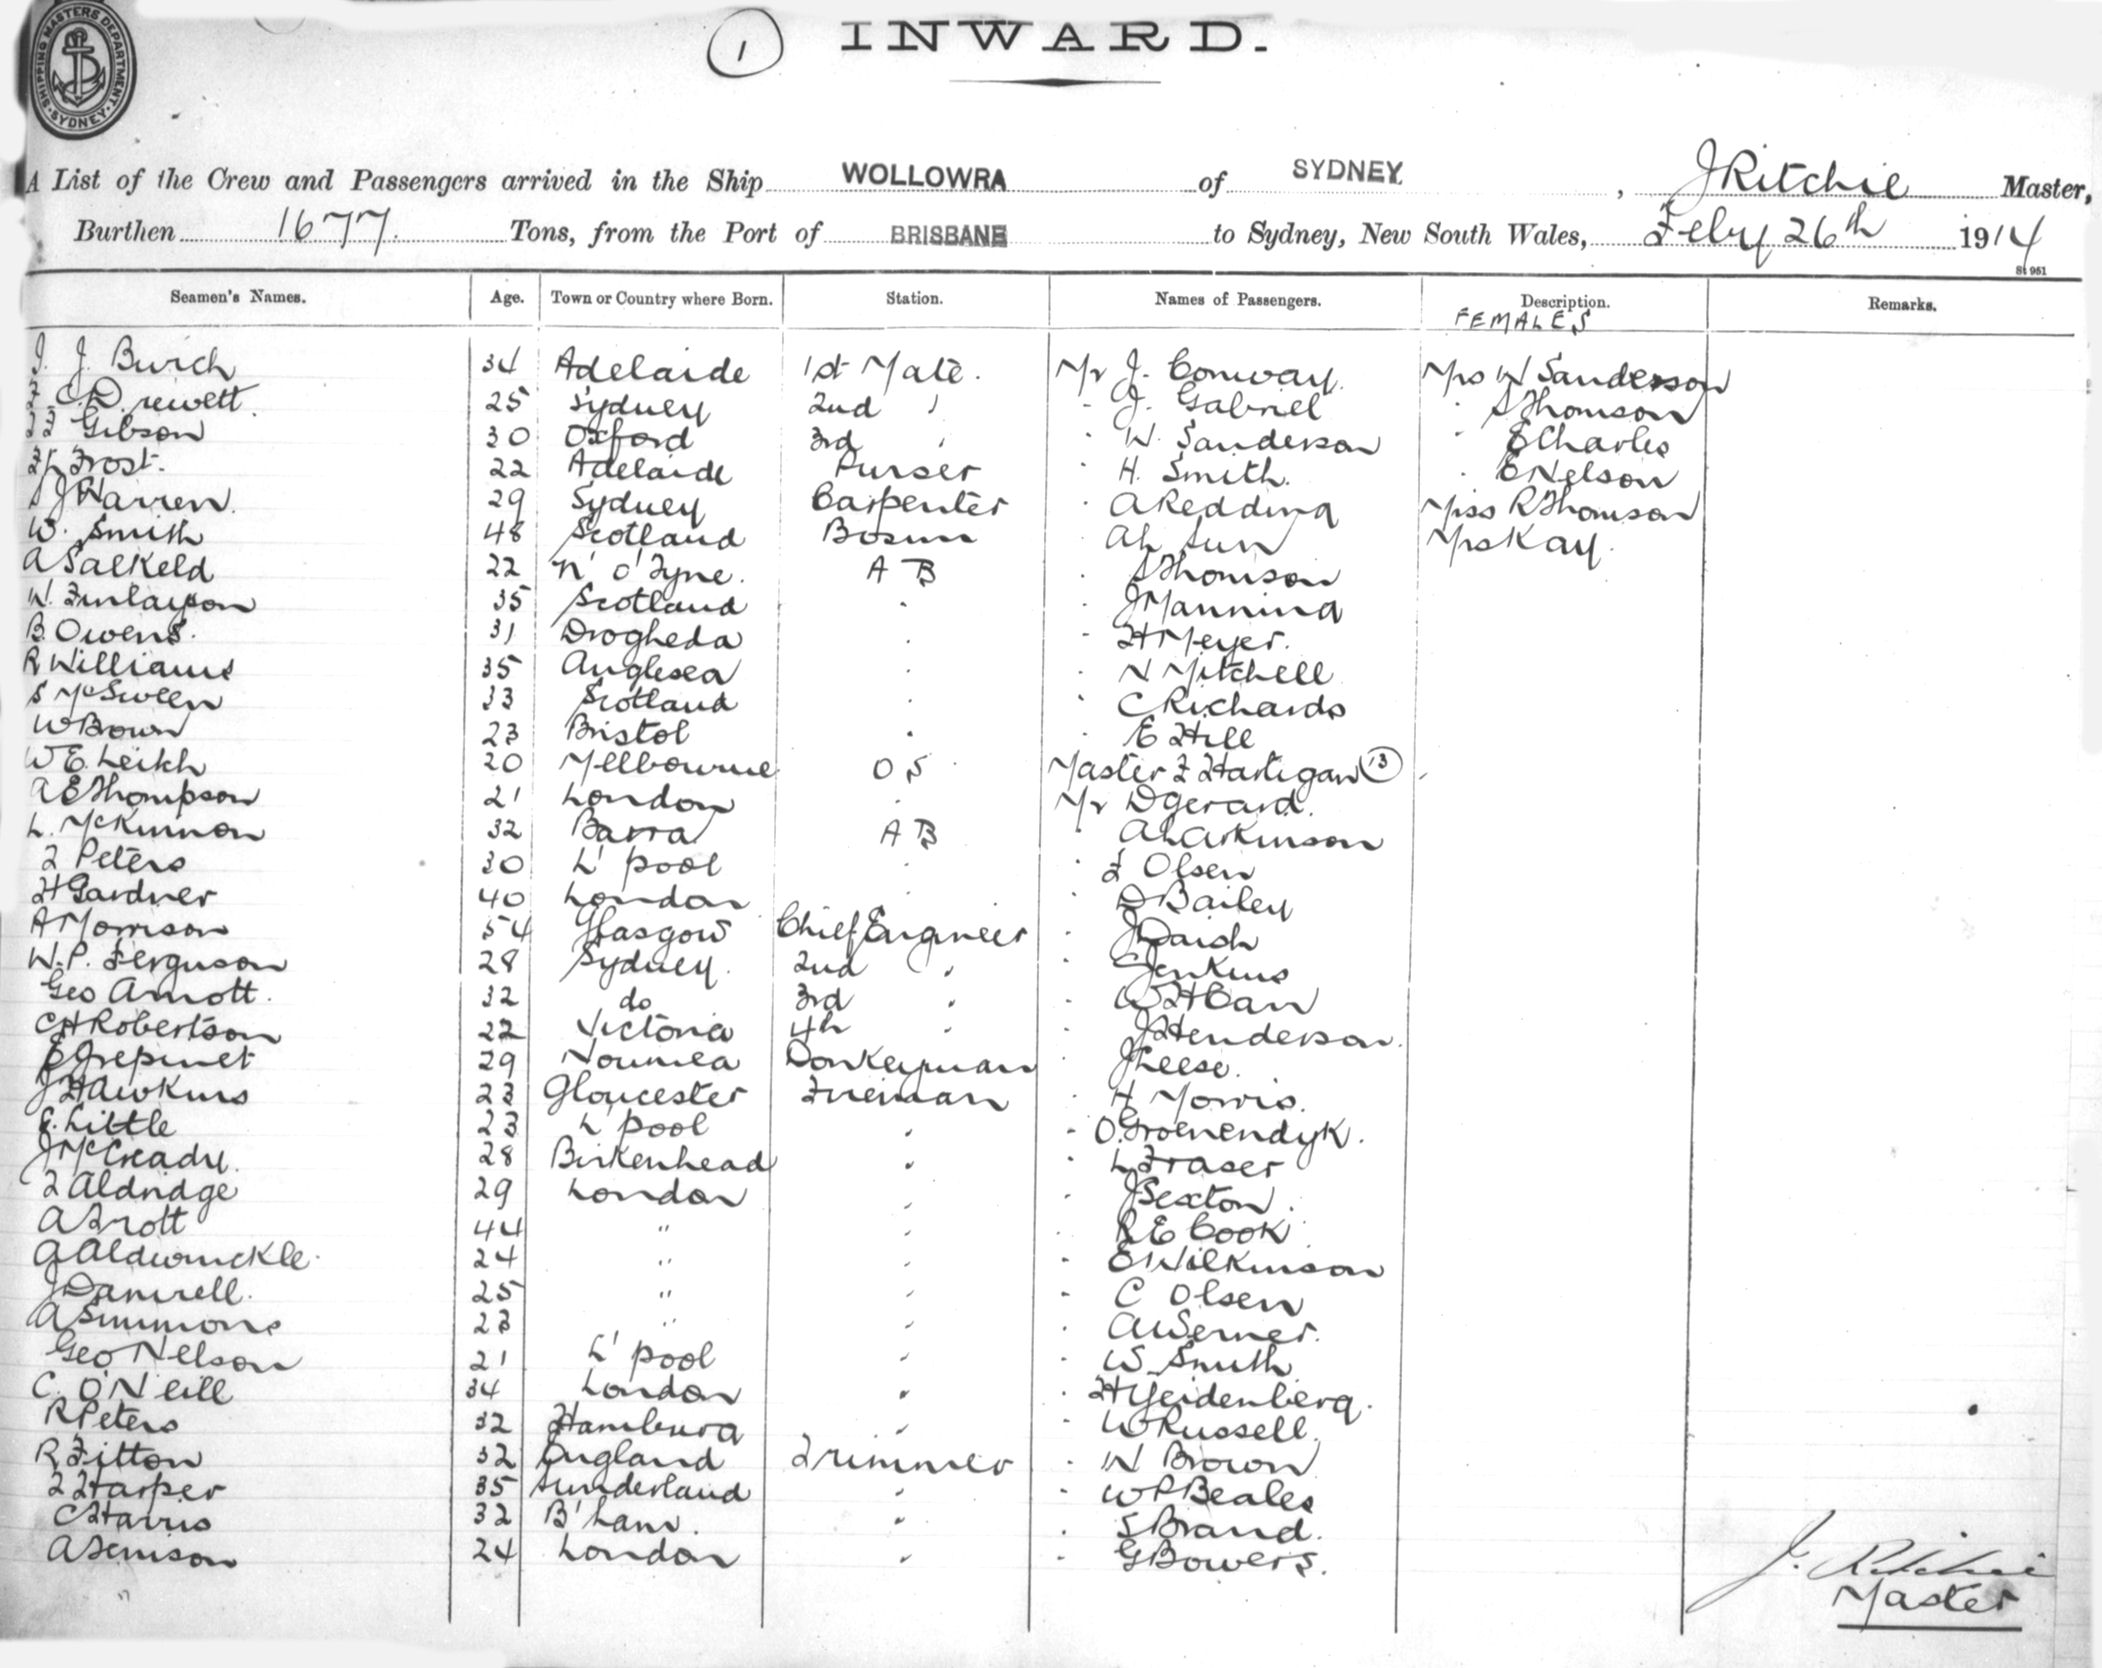 SHIPPING MASTERS DEPARTMENT. SYDNEY
1
INWARD.
A List of the Crew and Passengers arrived in the Ship WOLLOWRA of SYDNEY, J Ritchie Master,
Burthen 1677 Tons, from the Port of BRISBANE to Sydney, New South Wales, Feby 26th 1914
St 961
Seamen's Names. Age. Town or Country where Born. Station. Names of Passengers. Description. Remarks.
FEMALES
J. Burch 34 Adelaide 1st Mate. Mr J. Conway. Mrs W Sanderson
F. C. Drewett. 25 Sydney 2nd " " J. Gabriel " S Thomson
Gibson 30 Oxford 3rd " " W. Sanderson " E Charles
Frost. 22 Adelaide Purser " H. Smith. " E Nelson
J Warren. 29 Sydney Carpenter " A Redding Miss R Thomson
W. Smith 48 Scotland Bosun Ah Sun Mrs Kay.
A Salkeld 22 N' o' Tyne. A B " S Thomson
W. Finlayson 35 Scotland " " J Manning
B. Owens. 31 Drogheda " " H Meyer.
R Williams 35 Anglesea " " N Mitchell
S McSween 33 Scotland " " C Richards
W Brown 23 Bristol " " E Hill
W E. Leikh 20 Melbourne O S Master F Hartigan 13
A E Thompson 21 London " Mr D Gerard.
L. McKinnon 32 Barra A B " A Larkinson
F Peters 30 L'pool " " F Olsen
H Gardner 40 London " " D Bailey
A Morrison 54 Glasgow Chief Engineer " J Daish
W. P. Ferguson 28 Sydney. 2nd " " C Jenkins
Geo Arnott. 32 do 3rd " " W H Carr
C H Robertson 22 Victoria 4th " " J Henderson.
29 Noumea Donkeyman " J Leese.
J Hawkins 23 Gloucester Fireman " H Morris.
E. Little 23 L'pool " " O. Groenendyk.
J McCready. 28 Birkenhead " " L Fraser
F Aldridge 29 London " " J Sexton.
A Trott 44 " " " R E Cook
A Aldwinckle. 24 " " " E Wilkinson
J Damrell. 25 " " " C Olsen
A Simmons 23 " " " A Werner.
Geo Nelson 21 L'pool " " W Smith
C. O'Neill 34 London " " H Geidenberg.
R Peters 32 Hamburg " " W Russell.
R Fitton 32 England Trimmer " W Brown
F Harper 35 Sunderland " " W P Beales
C Harris 32 B'ham. " " S Brand.
A Denison 24 London " " G Bowers.
J. Ritchie
Master